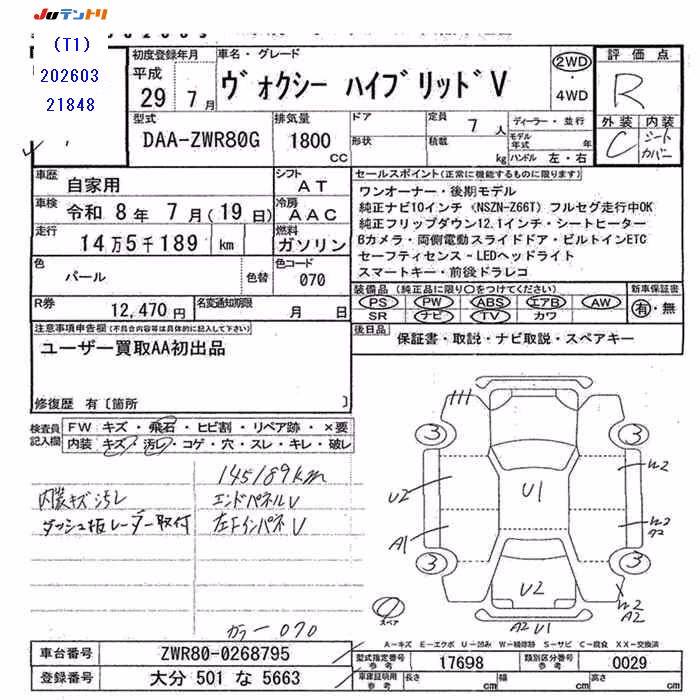 JUテントリ
(T1)
202603
21848
初度登録年月
平成
29年 7月
車名・グレード
ヴォクシー ハイブリッドV
2WD
・
4WD
評価点
R
型式
DAA-ZWR80G
排気量
1800
cc
ドア
形状
定員
7人
積載
kg
ディーラー・並行
モデル年式 年
ハンドル 左・右
外装 内装
C シートカバー
車歴 自家用
シフト AT
車検 令和 8年 7月(19日)
冷房 AAC
走行 14万5千189 km
燃料 ガソリン
色 パール
色替
色コード 070
R券 12,470円
名変通知期限 月 日
セールスポイント(正常に機能するものに限ります)
ワンオーナー・後期モデル
純正ナビ10インチ《NSZN-Z66T》フルセグ走行中OK
純正フリップダウン12.1インチ・シートヒーター
Bカメラ・両側電動スライドドア・ビルトインETC
セーフティセンス・LEDヘッドライト
スマートキー・前後ドラレコ
装備品(純正品に限り○をつけてください)
新車保証書
PS PW ABS エアB AW
SR ナビ TV カワ
有・無
後日品 保証書・取説・ナビ取説・スペアキー
注意事項申告欄(不具合内容等は具体的に記入して下さい)
ユーザー買取AA初出品
修復歴 有〔箇所 〕
検査員記入欄
FW キズ・飛石・ヒビ割・リペア跡・×要
内装 キズ・汚レ・コゲ・穴・スレ・キレ・破レ
145189km
内装キズ汚レ
エンドパネルU
ダッシュ板レーダー取付
左FインパネU
カラー070
3
3
3
3
U2
A1
U1
U2
W2
W2
W2
A2
A2 U1
スペア
A-キズ E-エクボ U-凹み W-補修跡 S-サビ C-腐食 XX-交換済
車台番号 ZWR80-0268795
型式指定番号参考 17698
類別区分番号参考 0029
登録番号 大分 501 な 5663
車庫証明用参考
長さ cm
幅 cm
高さ cm